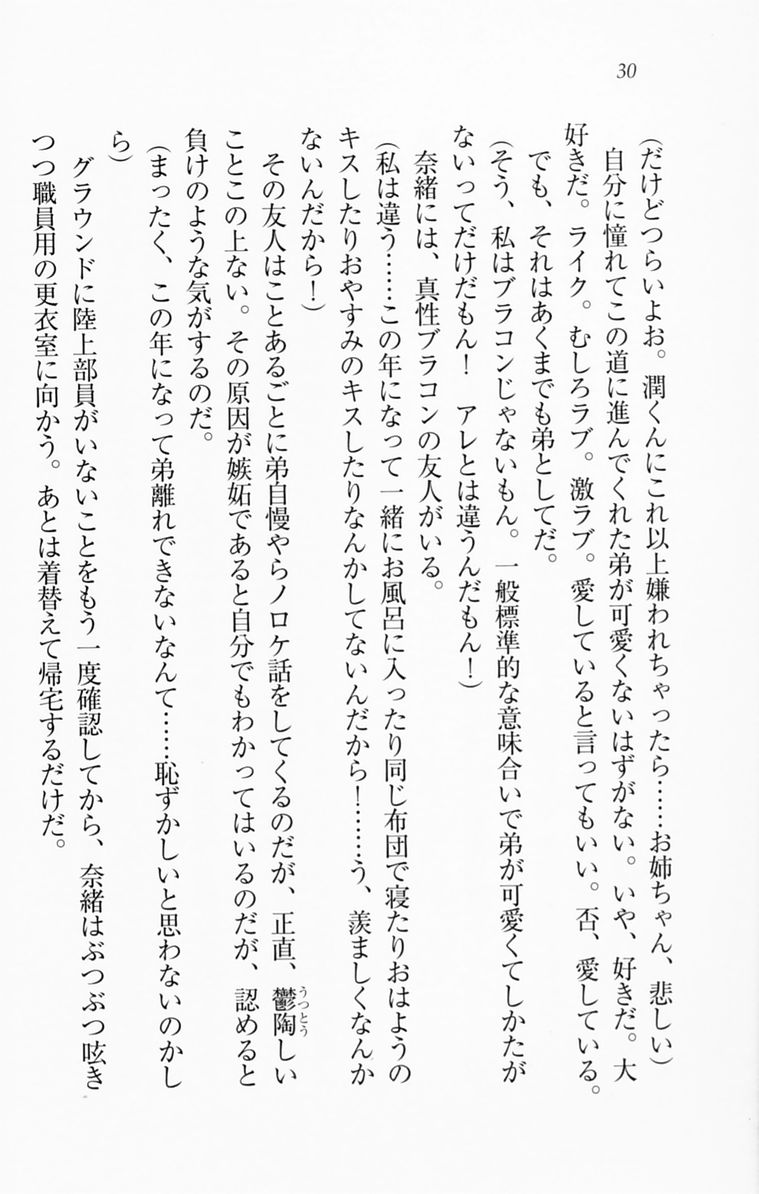 30
(だけどつらいよお。潤くんにこれ以上嫌われちゃったら……お姉ちゃん、悲しい)
自分に憧れてこの道に進んでくれた弟が可愛くないはずがない。いや、好きだ。大
好きだ。ライク。むしろラブ。激ラブ。愛していると言ってもいい。否、愛している。
でも、それはあくまでも弟としてだ。
(そう、私はブラコンじゃないもん。一般標準的な意味合いで弟が可愛くてしかたが
ないってだけだもん! アレとは違うんだもん!)
奈緒には、真性ブラコンの友人がいる。
(私は違う……この年になって一緒にお風呂に入ったり同じ布団で寝たりおはようの
キスしたりおやすみのキスしたりなんかしてないんだから!……う、羨ましくなんか
ないんだから!)
その友人はことあるごとに弟自慢やらノロケ話をしてくるのだが、正直、鬱陶しい
うっとう
ことこの上ない。その原因が嫉妬であると自分でもわかってはいるのだが、認めると
負けのような気がするのだ。
(まったく、この年になって弟離れできないなんて……恥ずかしいと思わないのかし
ら)
グラウンドに陸上部員がいないことをもう一度確認してから、奈緒はぶつぶつ呟き
つつ職員用の更衣室に向かう。あとは着替えて帰宅するだけだ。